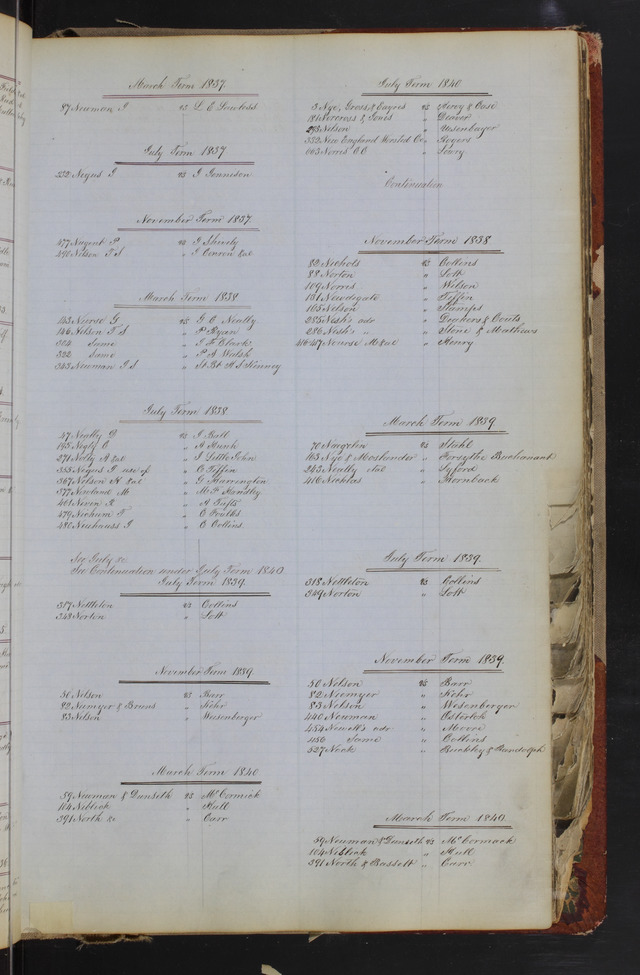 March Term 1837
87 Neuman J vs L E Lawless
July Term 1837
332 Negus J vs J Gonnison
November Term 1837
477 Nugent P vs J Sheely
490 Nelson T S " J Conron &al
March Term 1838
143 Nierse G vs G C Neally
146 Nelson T S " P Ryan
304 Same " J F Black
322 Same " P A Walsh
343 Newman J S " St Bt A S Kinney
July Term 1838
47 Neally D vs J Ball
195 Negly C " A Hawk
271 Nelly A &al " J Little John
355 Negus J use of " C Tiffin
367 Nelson H &al " G Harrington
377 Newland M " M P Handley
401 Neven R " A Tufts
479 Nichum T " C Coulks
480 Neuhauss J " C Collins
See July &c
See Continuation under July Term 1840
July Term 1839.
317 Nettleton vs Collins
348 Norton " Lott
November Term 1839
50 Nelson vs Barr
82 Niemyer & Bruns " Kehr
83 Nelson " Weisenberger
March Term 1840
59 Newman & Danseth vs McCormick
104 Niblick " Hull
391 North &c " Carr
July Term 1840
3 Nye, Gross & Eayres vs Avery & Case
181 Norcross & Jones " Deaver
278 Nelson "
332 New England Worsted Co " Rogers
663 Norris C C " Lowry
Continuation
November Term 1838
82 Nichols vs Collins
88 Norton " Lott
109 Norris " Wilson
151 Newdegate " Tiffin
165 Nelson " Stamps
285 Nish's adr " Deakers & Couts
286 Nish's " " Stone & Mathews
416-417 Nourse M &al " Henry
March Term 1839
70 Naegelin vs Stehl
163 Nye & Mostander " Forsythe Buchannans
243 Neally etal " Syford
416 Nicklas " Thornback
July Term 1839.
318 Nettleton vs Collins
349 Norton " Lott
November Term 1839
50 Nelson vs Barr
82 Niemyer " Kehr
83 Nelson " Wesenberger
440 Newman "
454 Newell's adr " Moore
456 Same " Collins
527 Nock " Buckley & Randolph
March Term 1840.
59 Neuman & Danseth vs McCormack
104 Niblick " Hull
391 North & Bassett " Carr